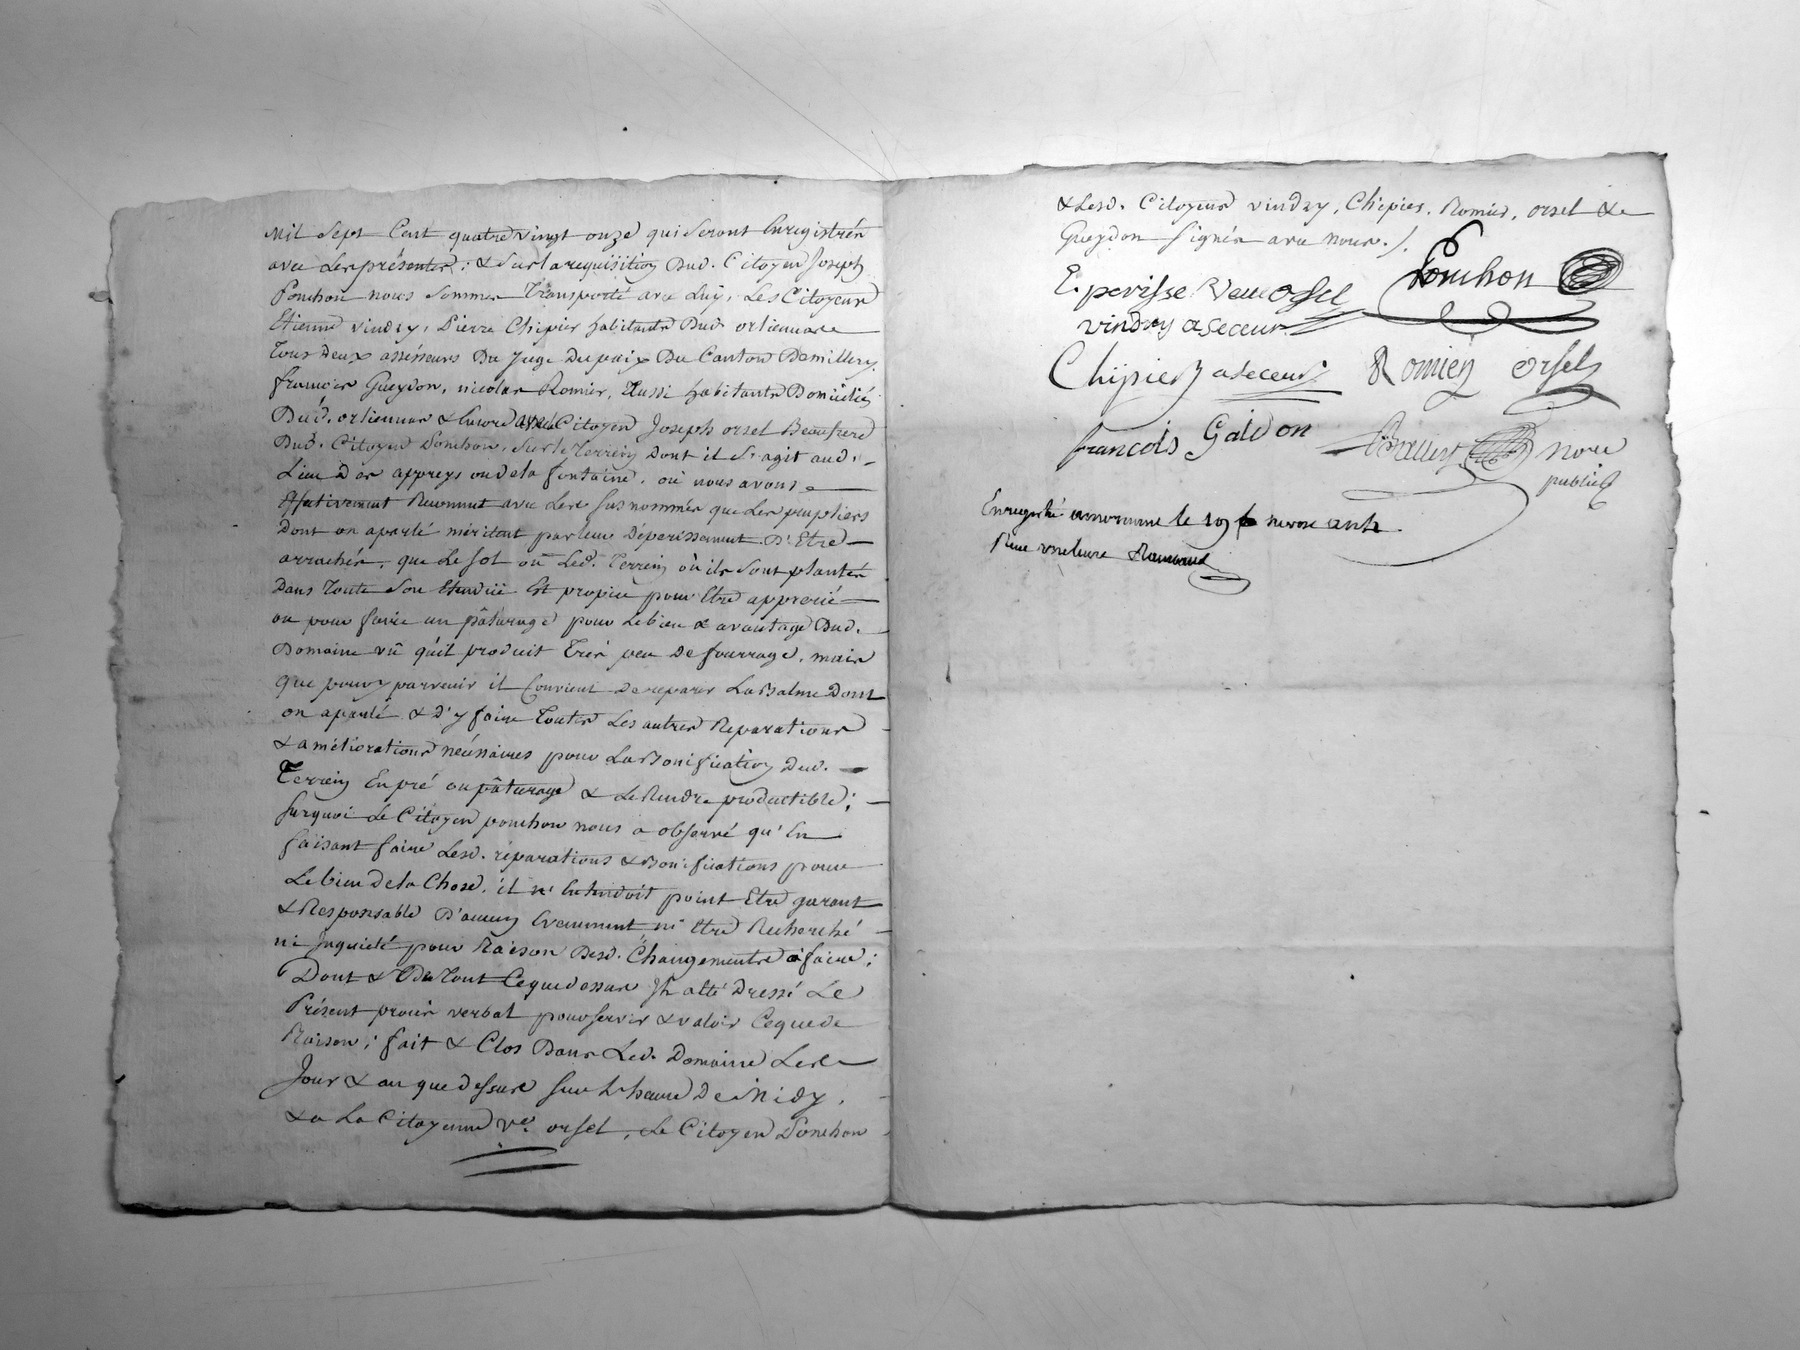 Mil Sept Cent quatre vingt onze qui Seront Enregistrés
avec Les présentes; & Sur la requisition Dud. Citoyen Joseph
Ponchon nous Sommes Transporté avec Luy, Les Citoyens
Etienne vindry, Pierre Chipier habitants Dud. orlienas
Tous Deux assesseurs Du Juge De paix Du Canton De millery,
françois Gueydon, nicolas Romier, aussi habitants Domiciliés
Dud. orlienas & Encore avec Citoyen Joseph orsel Beaufrere
Dud. Citoyen Ponchon, Sur le Terrein Dont il S'agit aud.
Lieu D'es appreys ou de la fontaine, où nous avons
Effectivement Reconnut avec Les Susnommés que Les peupliers
Dont on a parlé méritent par leur Dépérissement D'Etre
arrachés, que Le Sol ou Led. Terrein où ils Sont plantés
Dans Toute Son Etendüe Est propice pour Etre
ou pour faire un pâturage pour Le bien & avantage Dud.
Domaine vû qu'il produit Très peu De fourrage, mais
que pour y parvenir il Convient De reparer La Balme Dont
on a parlé & D'y faire Toutes Les autres Reparations
& améliorations nécessaires pour La Bonification Dud.
Terrein En pré ou pâturage & Le Rendre productible;
Surquoi Le Citoyen ponchon nous a observé qu'En
faisant faire Lesd. réparations & Bonifications pour
Le bien De la Chose, il n'Entendoit point Etre garant
& Responsable D'aucun Evenement ni Etre Recherché
ni Inquieté pour Raison Desd. Changements à faire;
Dont & Du Tout Ceque dessus Il a été Dressé Le
Présent procès verbal pour servir & valoir Ceque de
Raison; fait & Clos Dans Led. Domaine Les
Jour & an que dessus Sur L'heure De Midy,
& a La Citoyenne ve. orsel, Le Citoyen Ponchon
& Lesd. Citoyens vindry, Chipier, Romier, orsel &
Gueydon Signés avec nous./.
E. perisse Veuve Orsel Ponchon
vindry aseceur
Chipier aseceur Romien orsel
francois Gaidon nore
public
Enregistré a le 19 nivose an 2
Reçu une livre